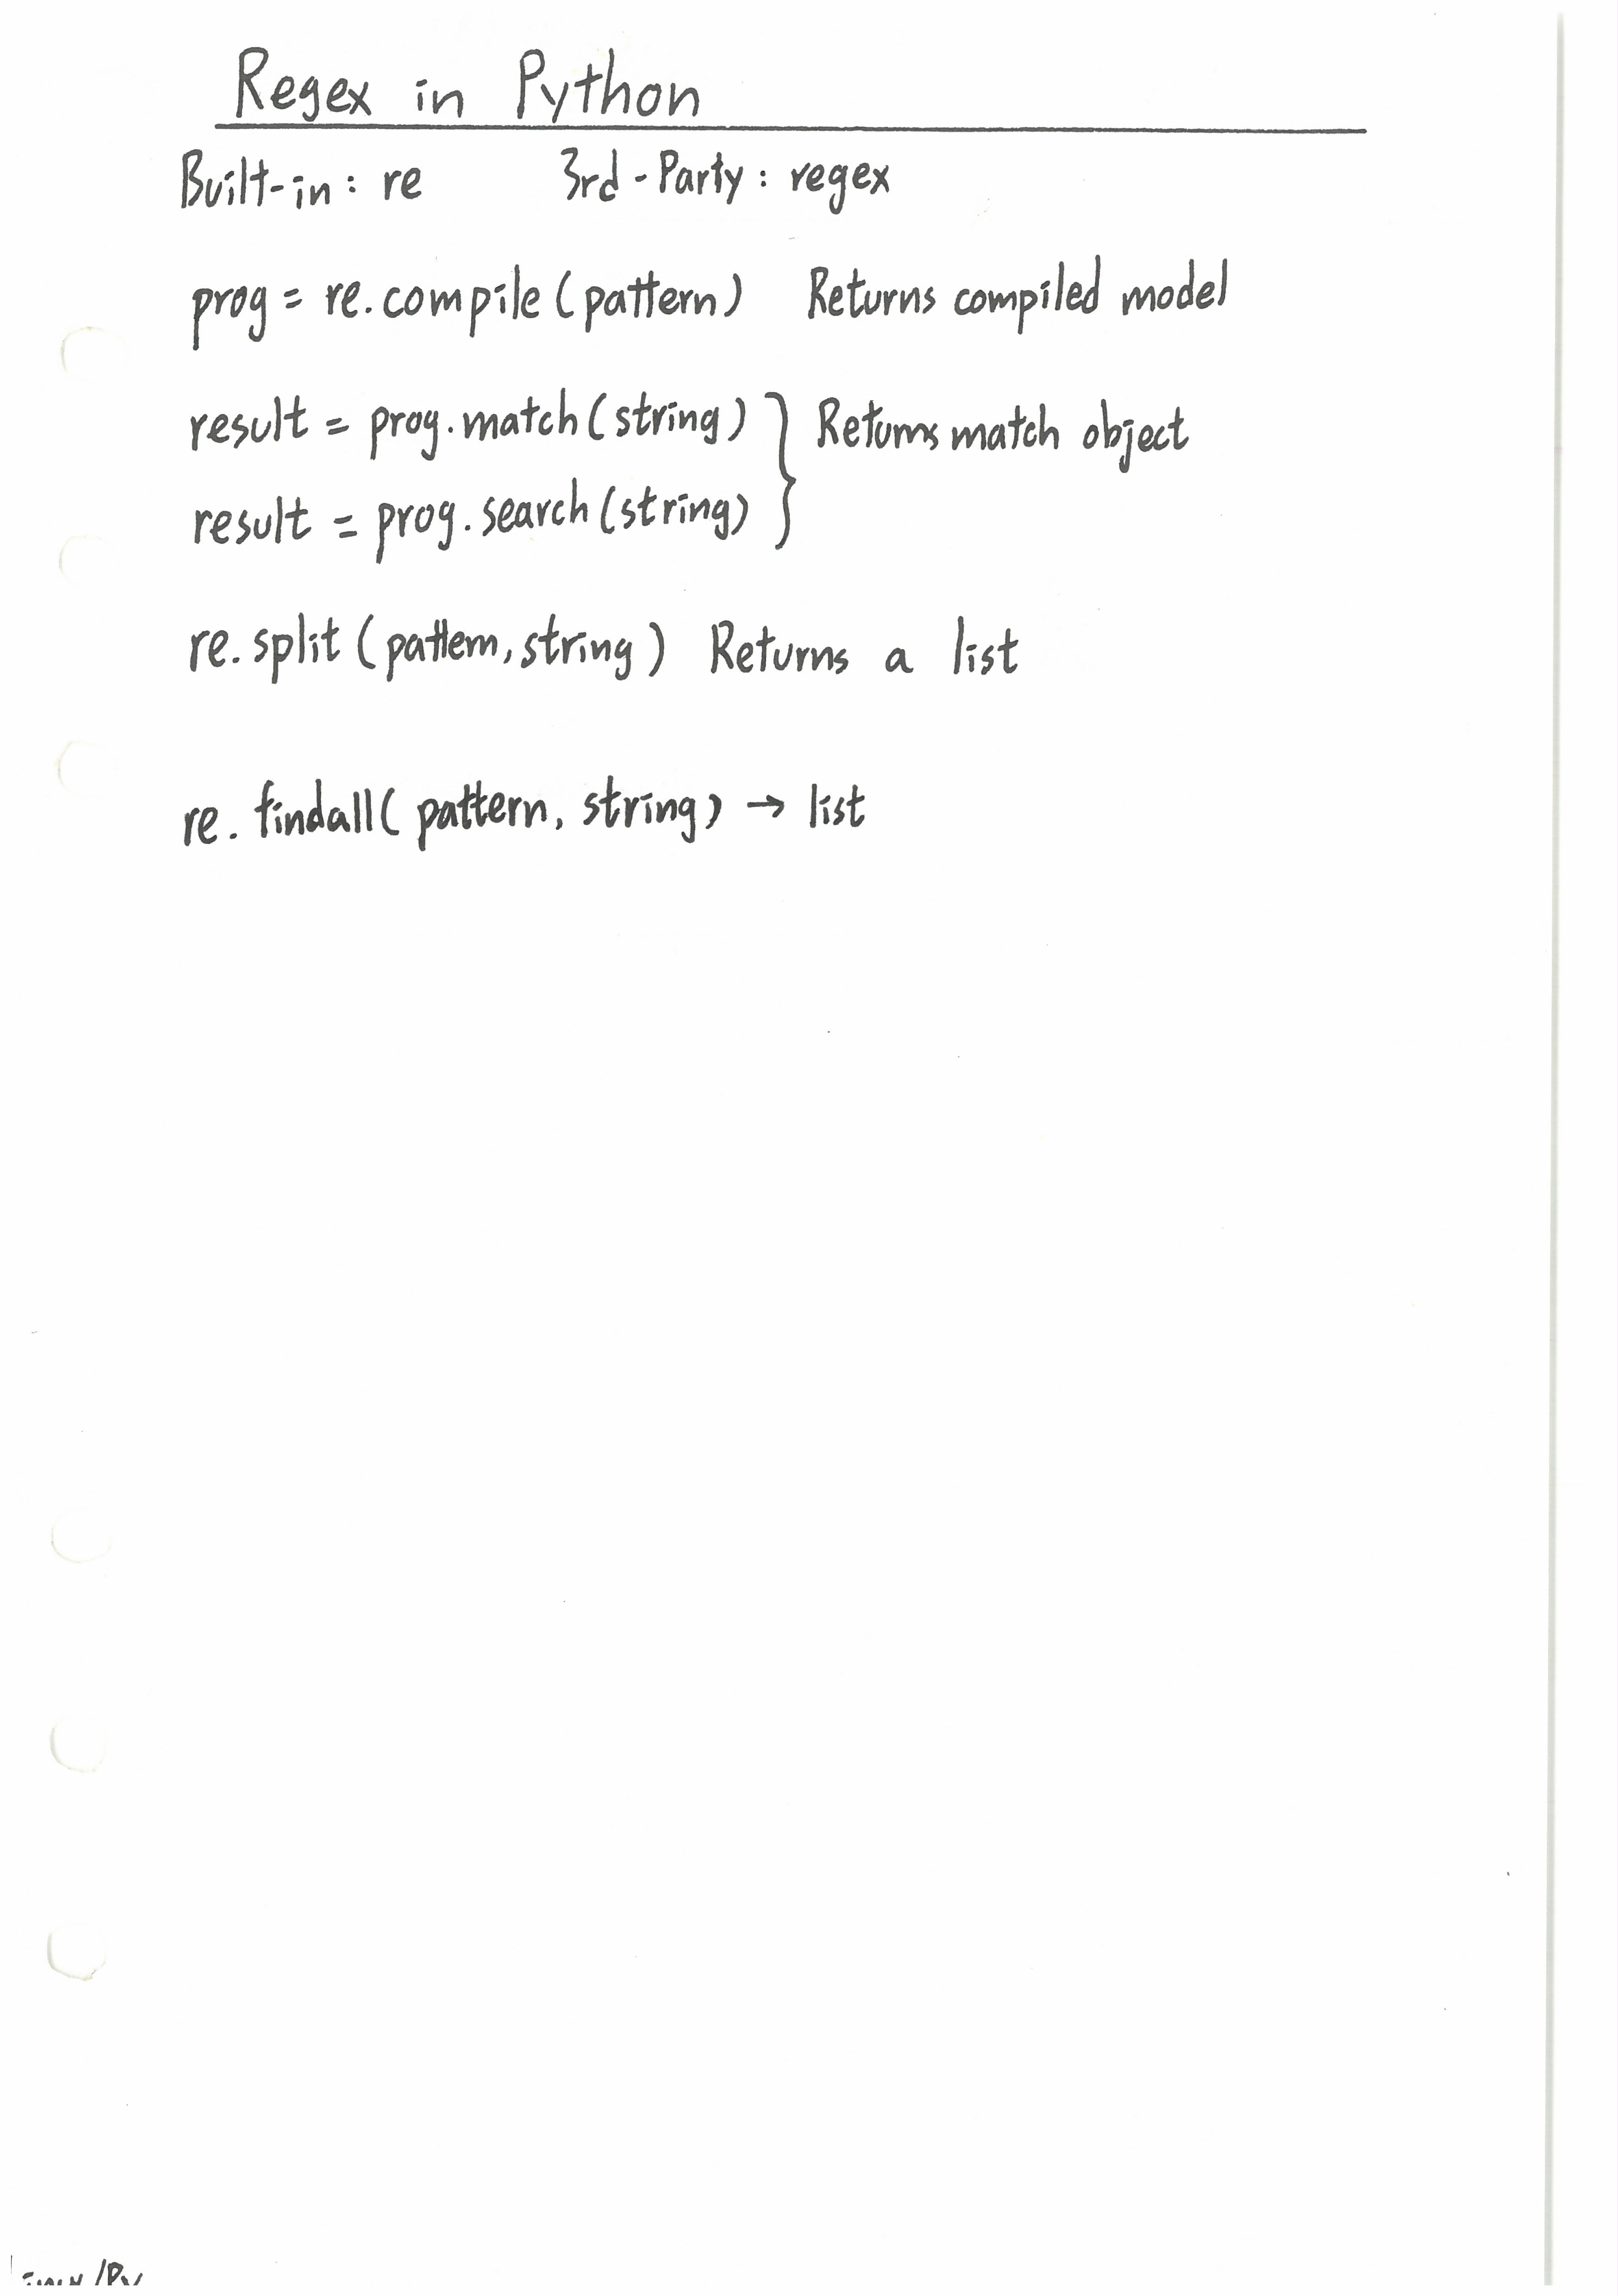 Regex in Python
Built-in: re 3rd-Party: regex
prog = re.compile(pattern) Returns compiled model
result = prog.match(string) } Returns match object
result = prog.search(string)
re.split(pattern, string) Returns a list
re.findall(pattern, string) → list